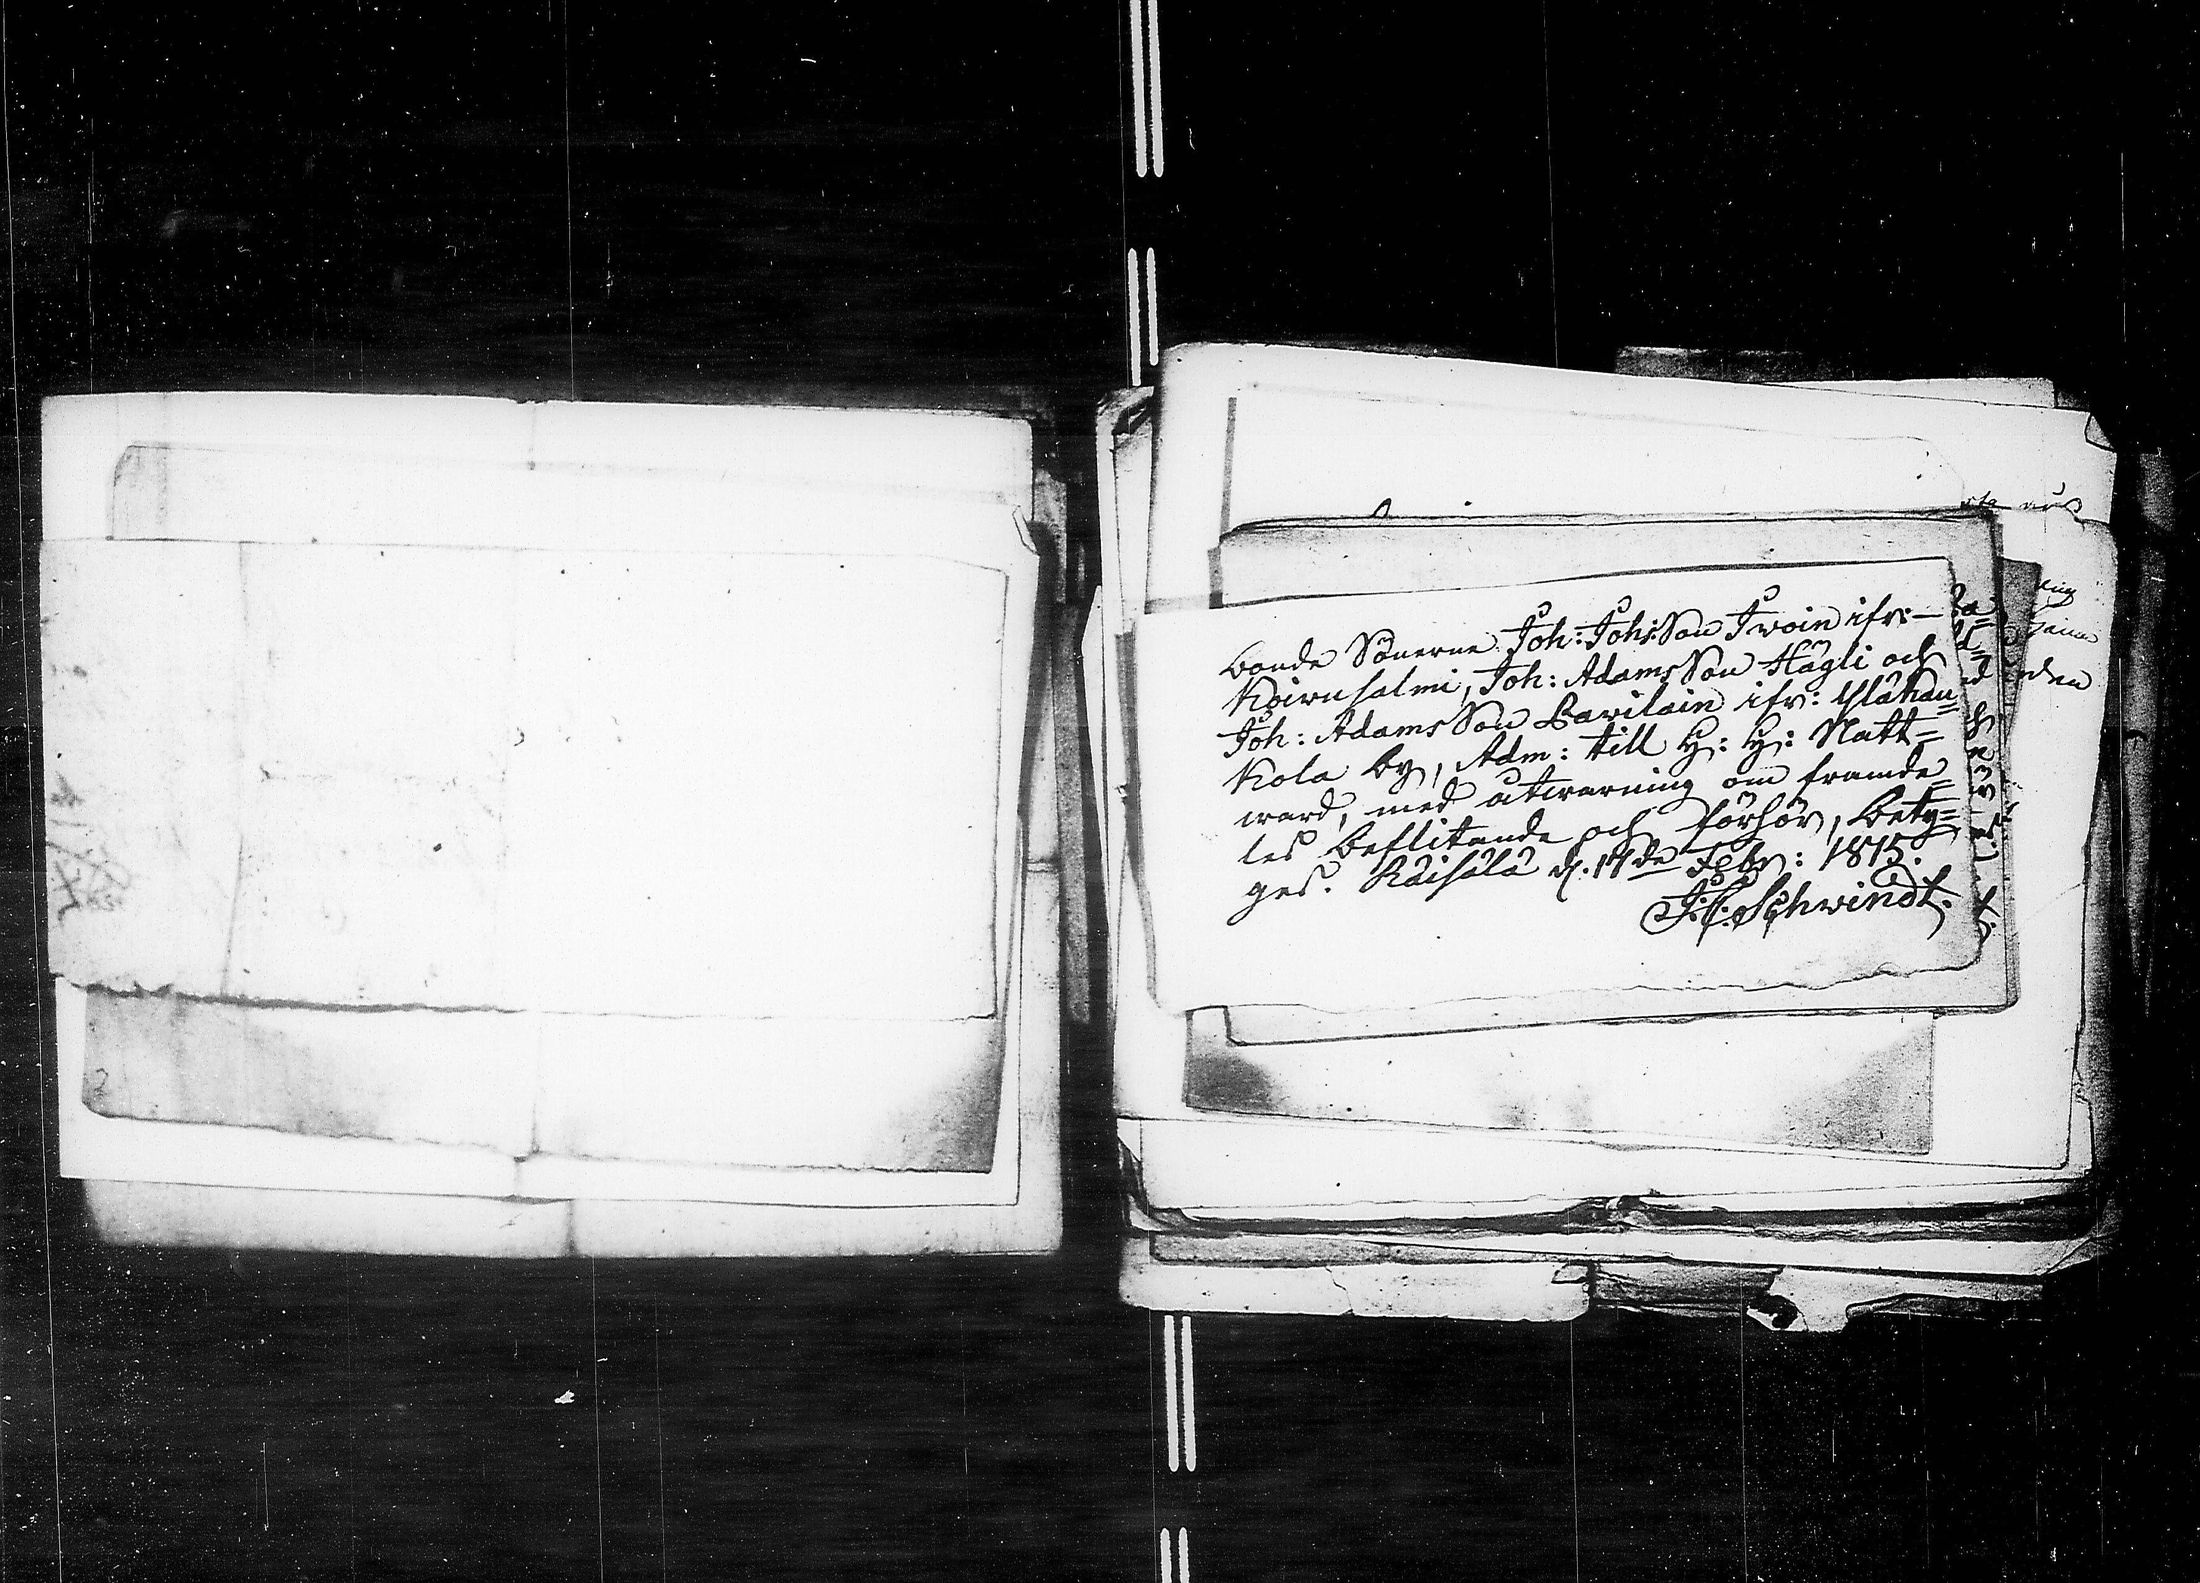 Bonde Sönerne Joh: Johs Son Iwoin ifr:—
Koirusalmi, Joh: Adams Son Hägli och
Joh: Adams Son Pavilain ifr: Yläkau=
kola by, Adm: till H: H: Natt=
ward, med åtwarning om framde=
les beflitande och förhör, bety=
ges. Räisälä d. 17de Febr: 1815.
J: C: Schwindt.